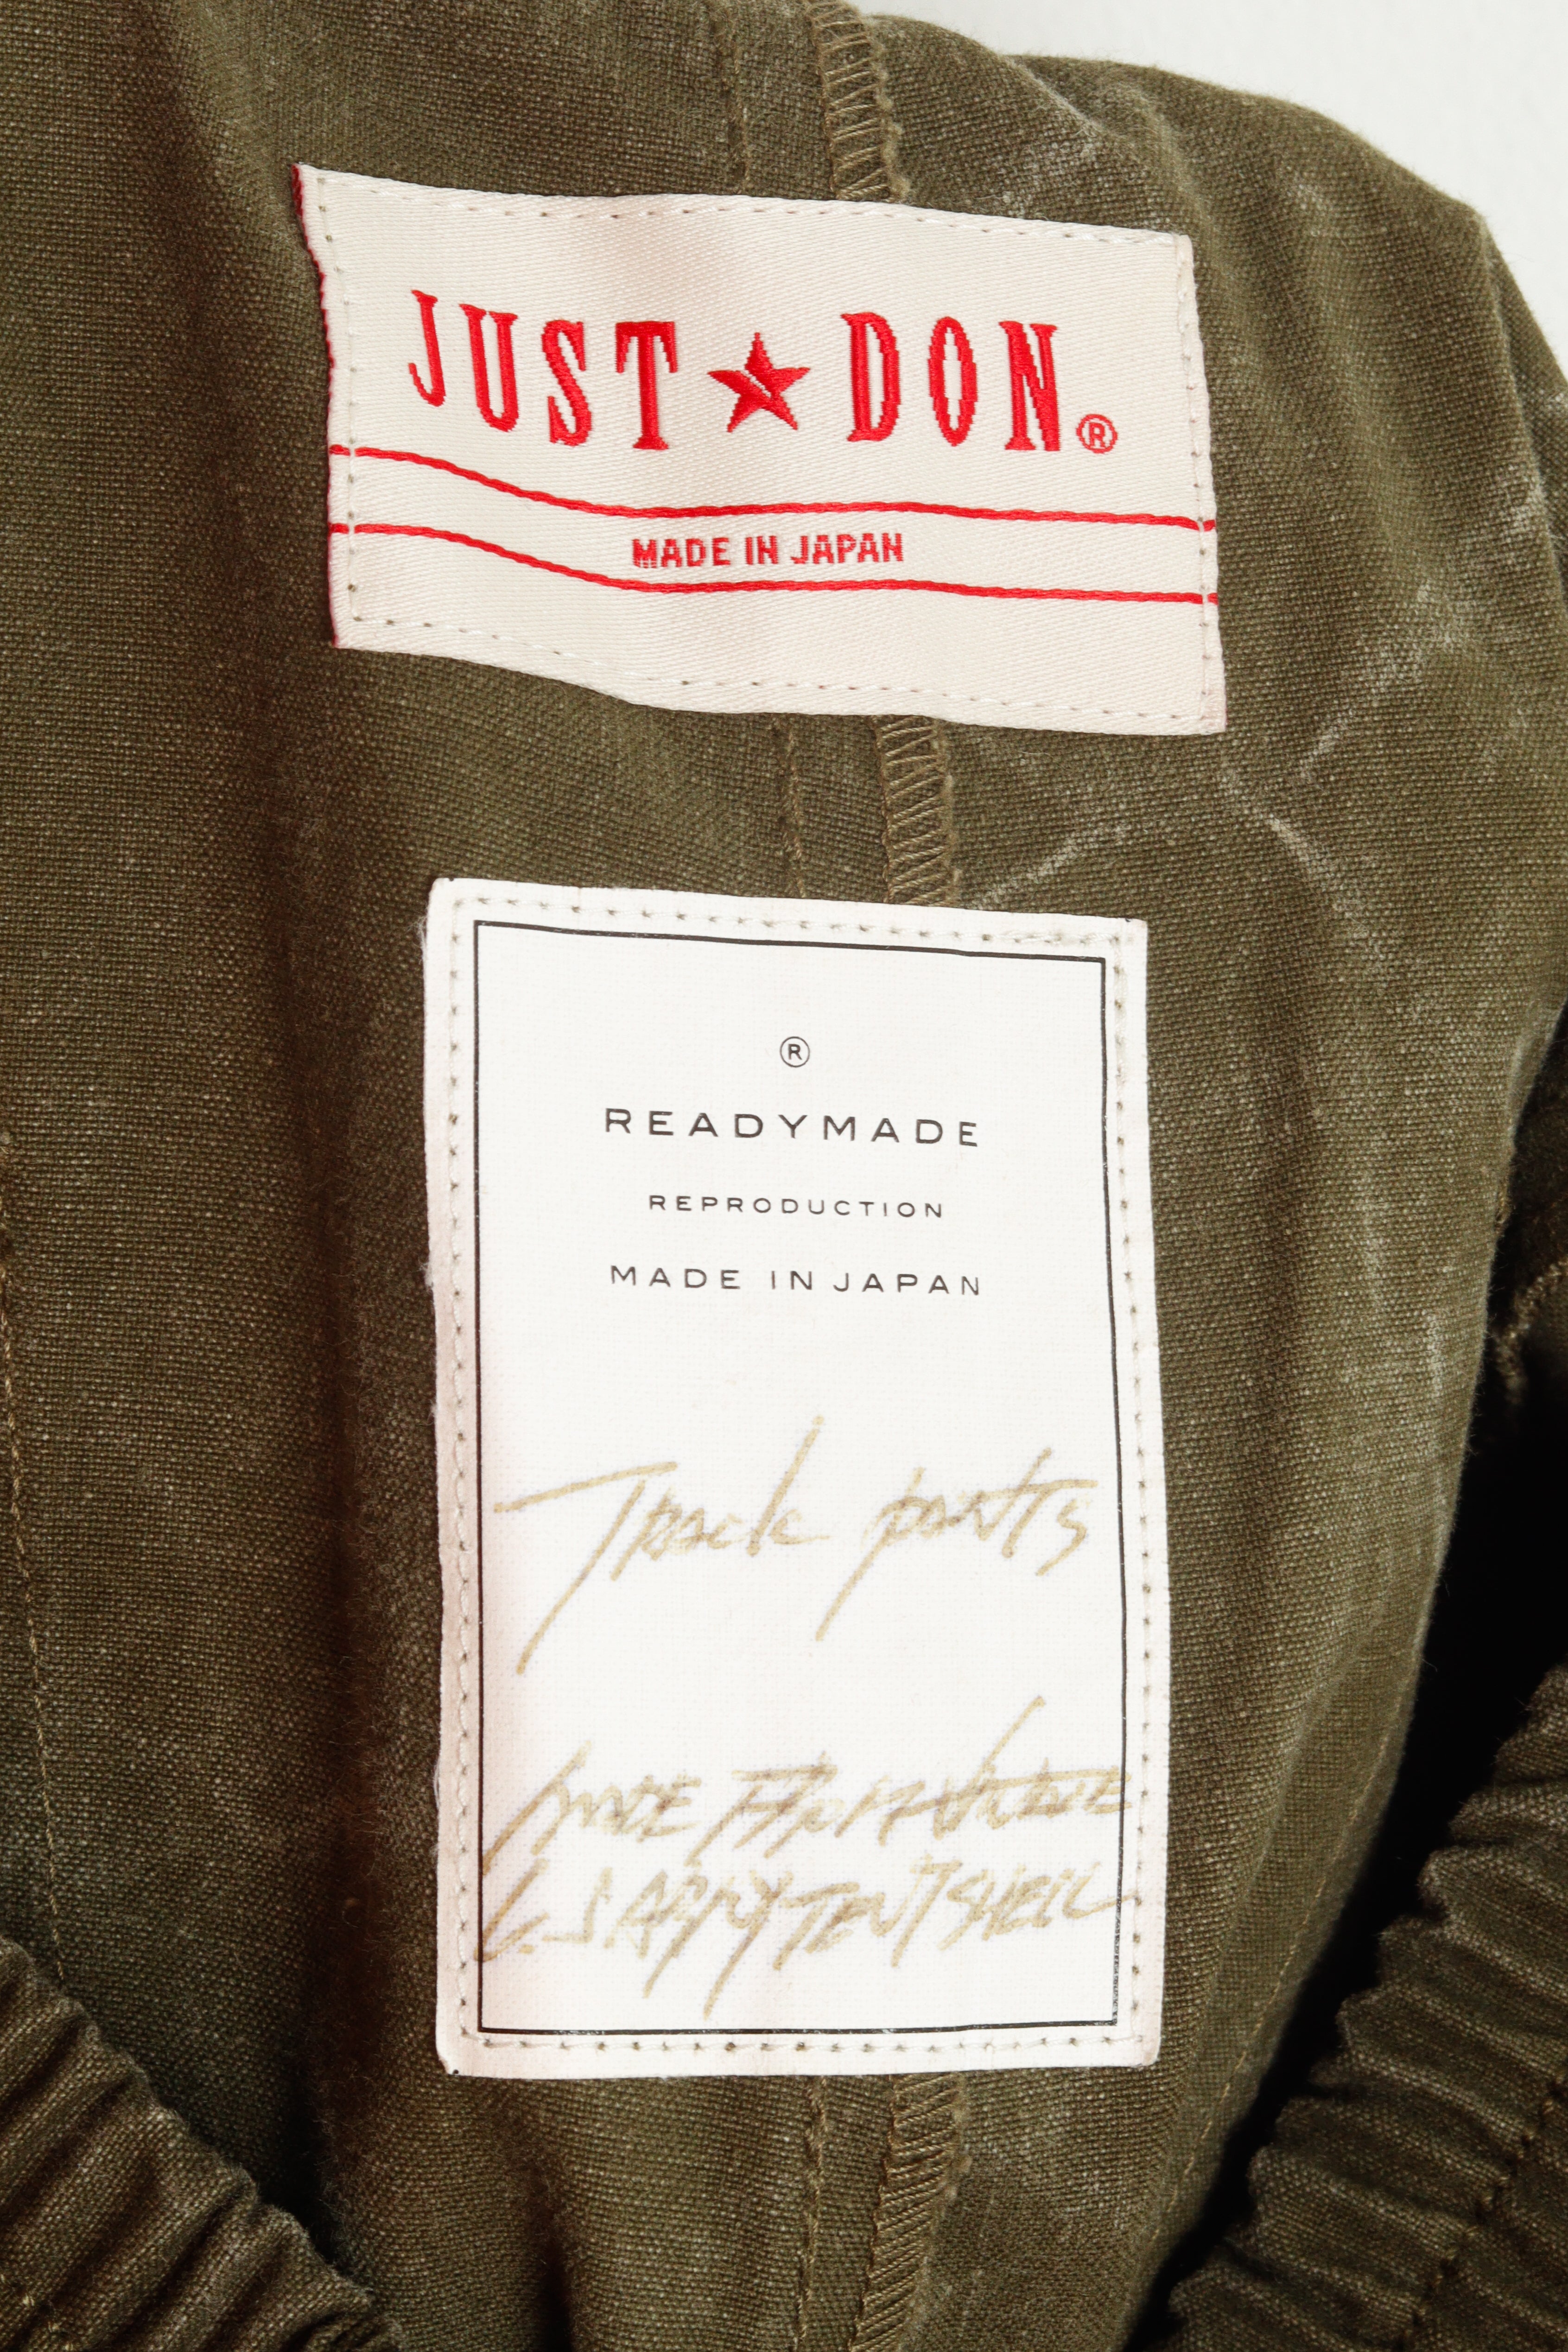 JUST★DON®
MADE IN JAPAN
®
READYMADE
REPRODUCTION
MADE IN JAPAN
Track pants
MADE FROM VINTAGE
U.S. ARMY TENT SHELL